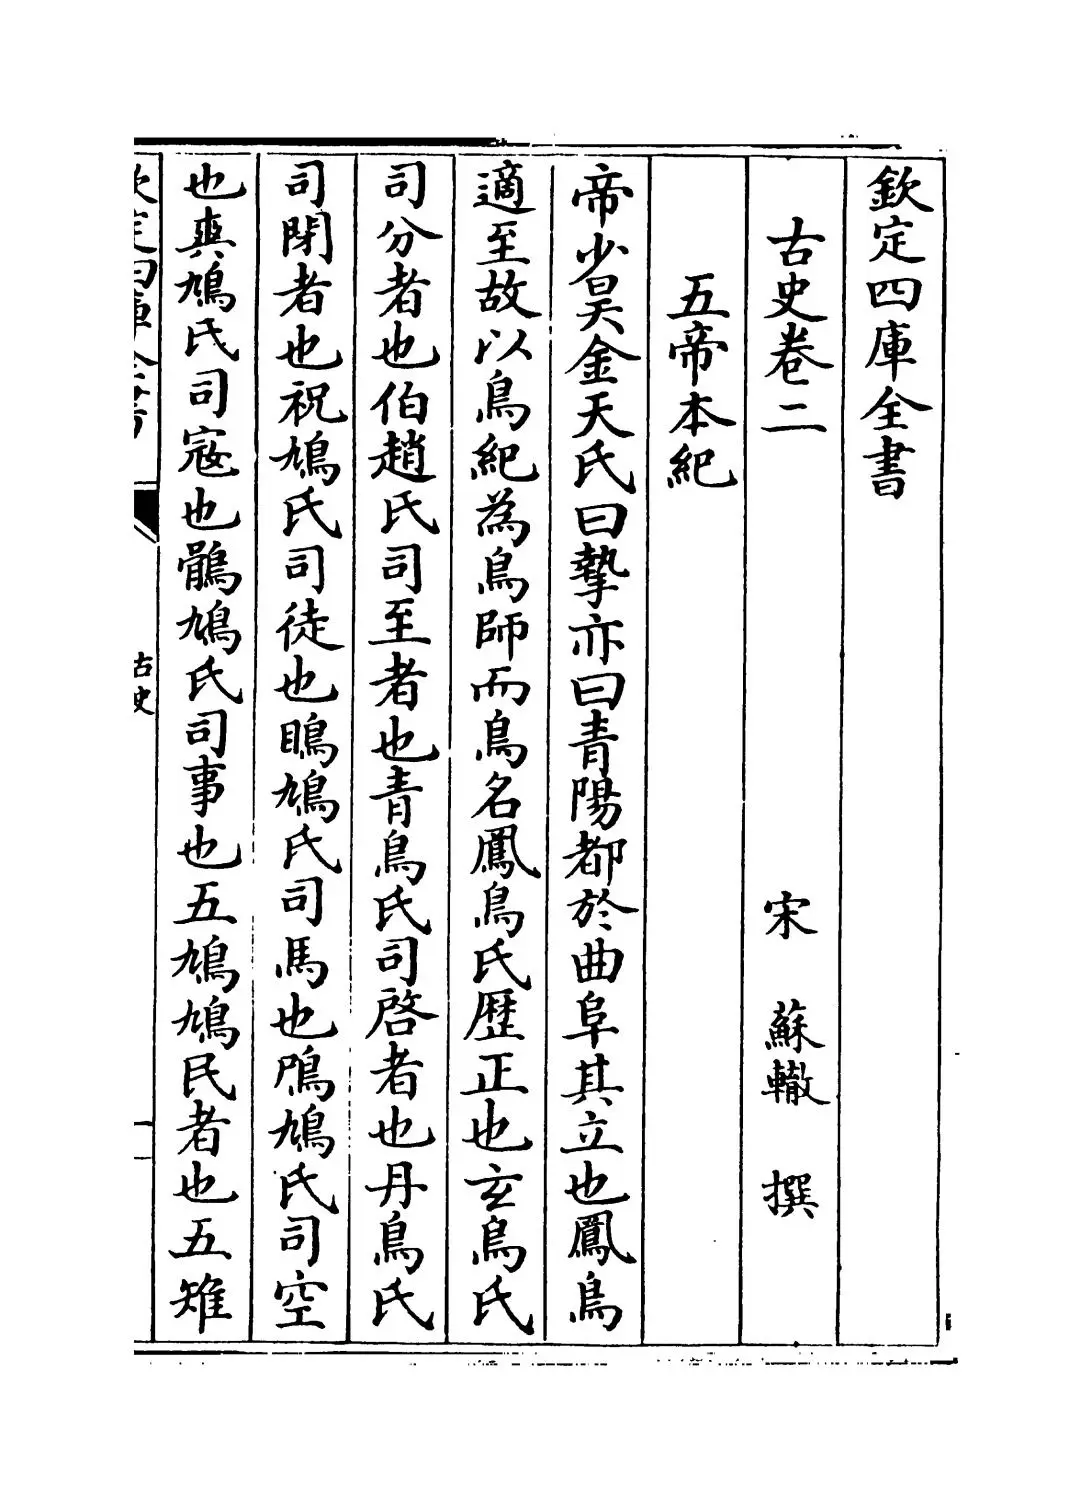 欽定四庫全書
古史卷二　宋　蘇轍　撰
五帝本紀
帝少昊金天氏曰摯亦曰青陽都於曲阜其立也鳳鳥
適至故以鳥紀為鳥師而鳥名鳳鳥氏歴正也玄鳥氏
司分者也伯趙氏司至者也青鳥氏司啓者也丹鳥氏
司閉者也祝鳩氏司徒也鴡鳩氏司馬也鳲鳩氏司空
也爽鳩氏司寇也鶻鳩氏司事也五鳩鳩民者也五雉
欽定四庫全書
古史
一